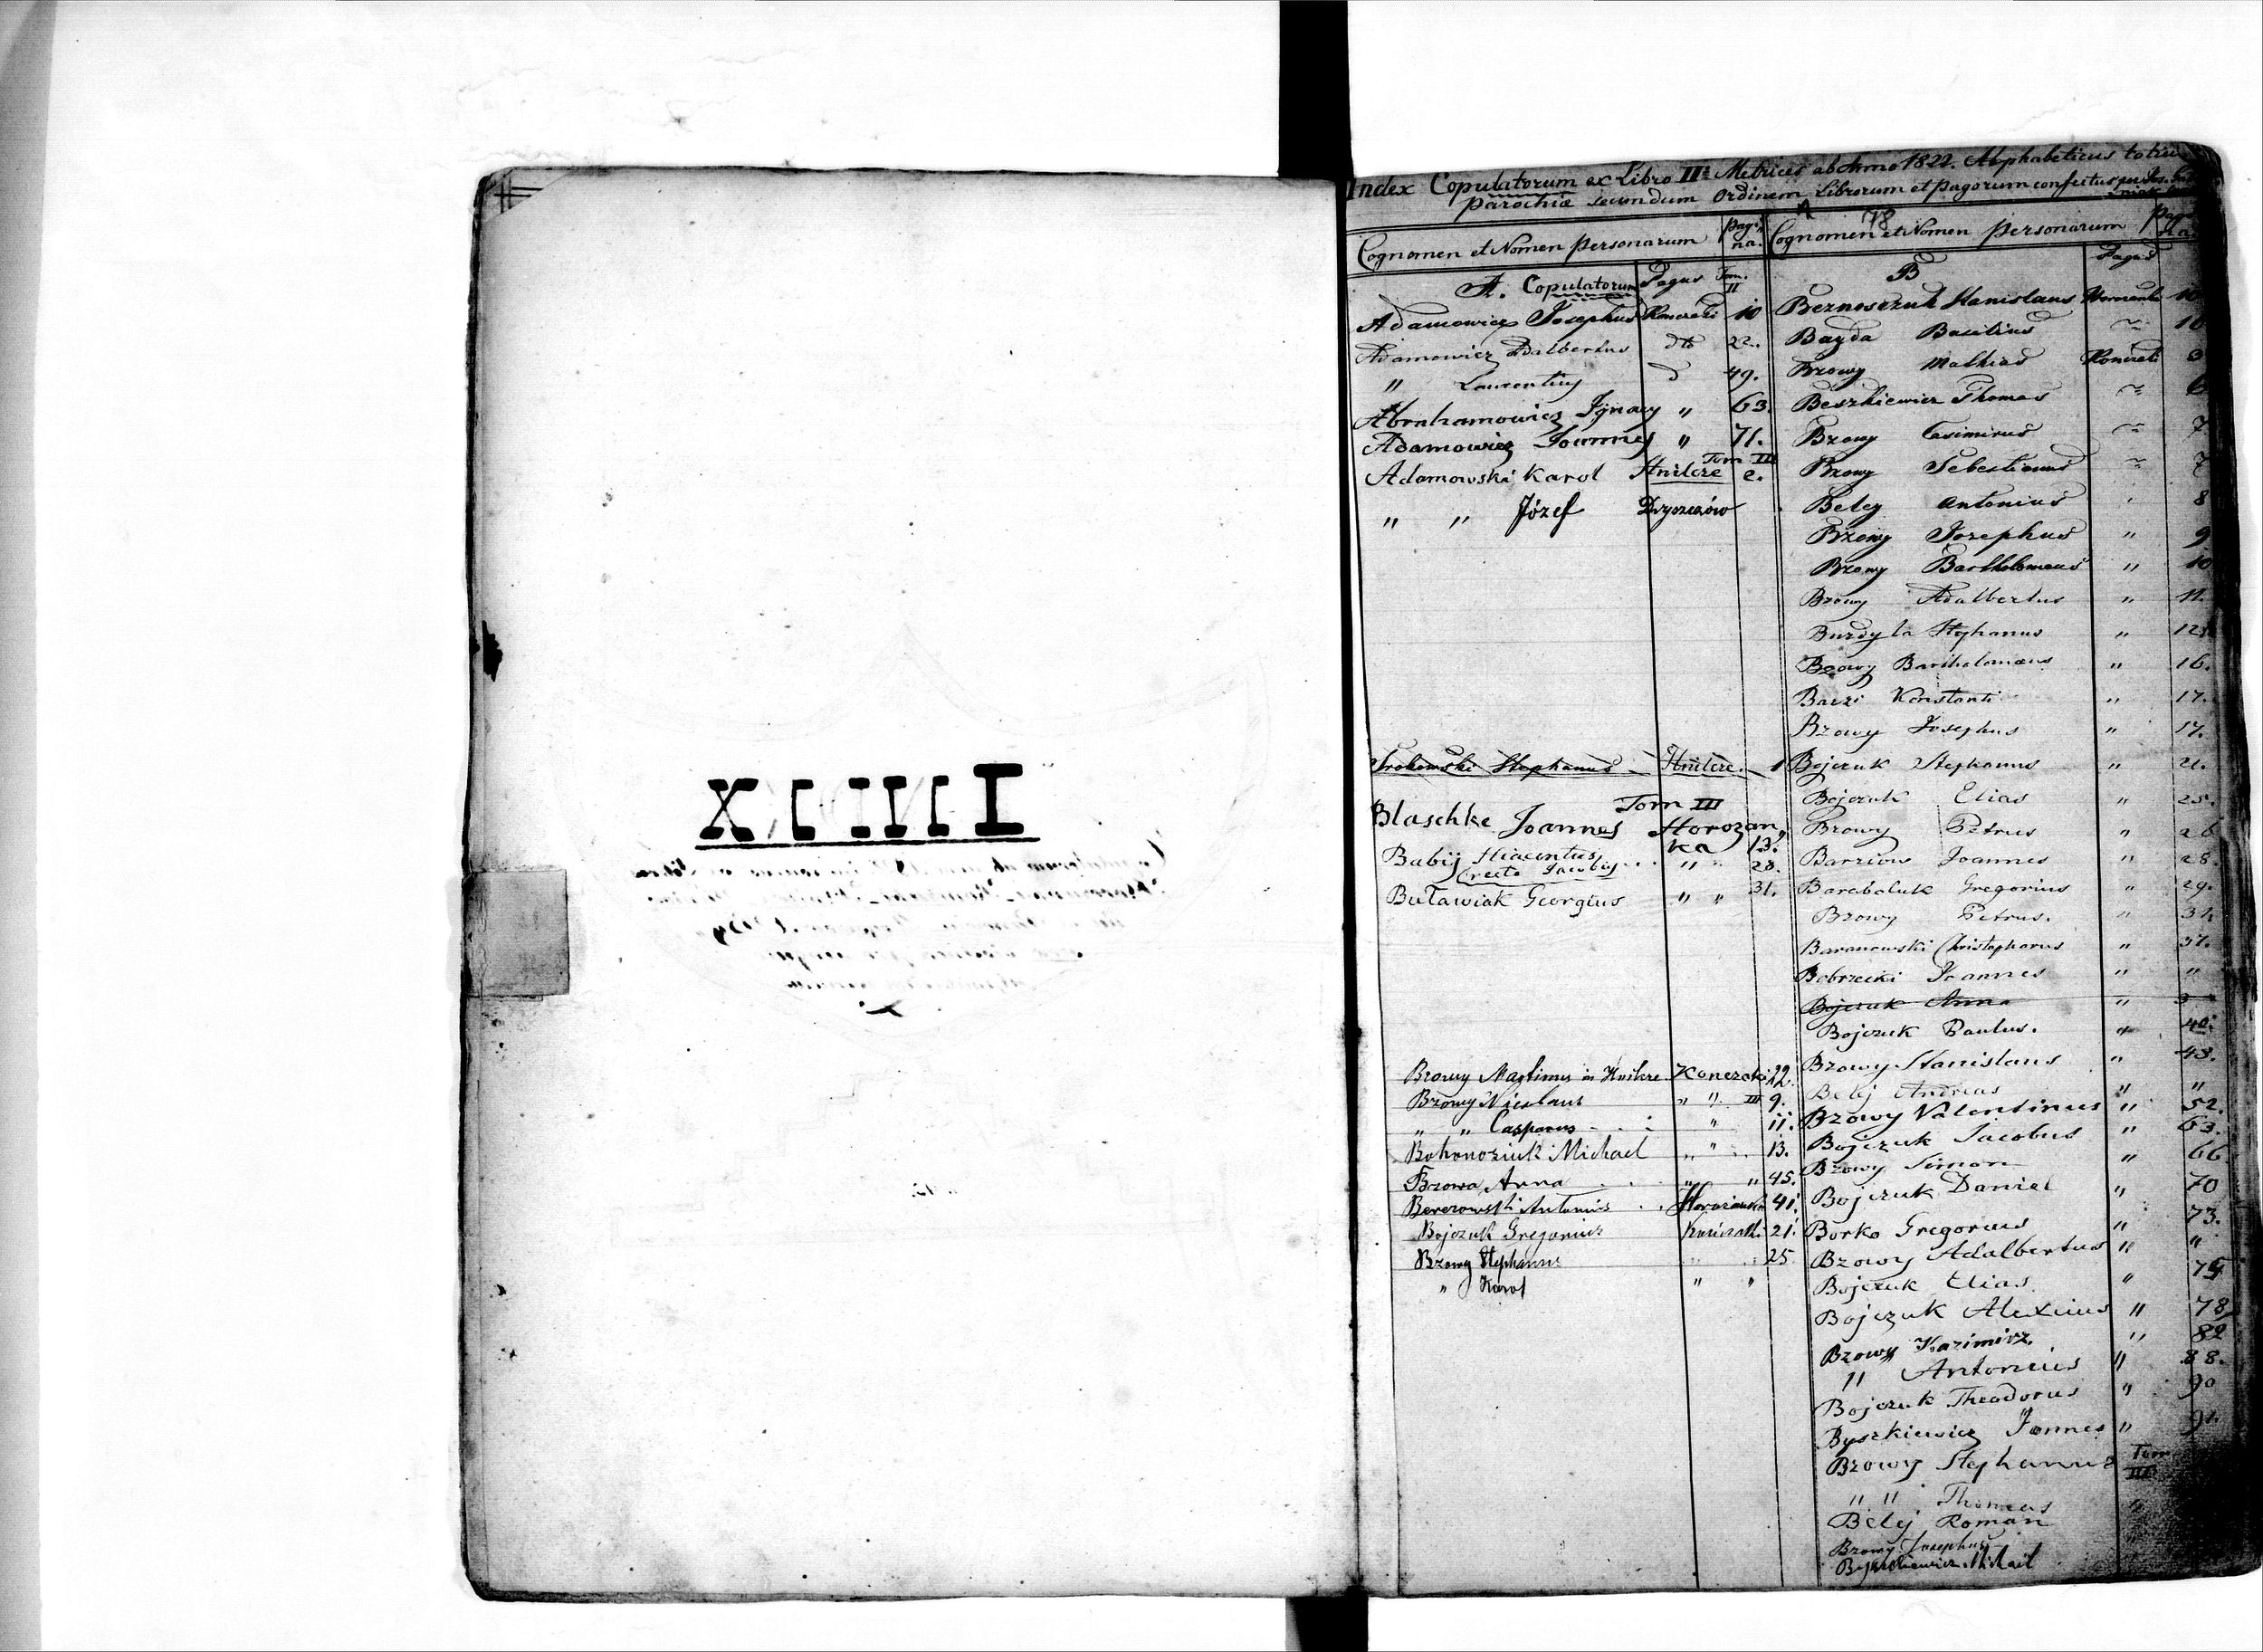 Index Copulatorum ex Libro II Metrices ab Anno 1822. Alphabeticus totius
parochiæ secundum Ordinem Librorum et pagorum confectus
Cognomen et Nomen personarum pagina.
A. Copulatorum Pagus Tom. II
Adamowicz Josephus Konczaki 10
Adamowicz Adalbertus dto 22.
" Laurentius d 49.
Abrahamowicz Ignacy " 63.
Adamowicz Joannes " 71.
Tom III
Adamowski Karol Hnilcze 2.
" " Józef Dryszczów
Stephanus Hnilcze 1
Tom III
Blaschke Joannes Horozanka 13.
Babij Hiacintus " " 28.
(recte Jacobus
Buławiak Georgius " " 31.
Bzowy Martinus in Hnilcze Konczaki 22.
Bzowy Nicolaus " " III 9.
" " Casparus " 11.
Bohonoziuk Michael " " 13.
Bzowa Anna " " 45.
Berezowski Antonius Horozanka 41.
Bojczuk Gregorius Kończaki 21.
Bzowy Stephanus 25
" Karol " "
XLIIII
Cognomen et Nomen personarum pagina
B Pagus
Beznoszczuk Stanislaus 10
Bayda Basilius 10
Bzowy Mathias Konczaki 3
Beszkiewicz Thomas 6
Bzowy Casimirus 7
Bzowy Sebestianus 7
Beley Antonius 8
Bzowy Josephus " 9
Bzowy Bartholomeus " 10
Bzowy Adalbertus " 11.
Burdyla Stephanus " 12.
Bzowy Bartholomæus " 16.
Barzi Konstanti " 17.
Bzowy Josephus " 17.
Bojczuk Stephanus " 21.
Bojczuk Elias " 25.
Bzowy Petrus " 26
Barziow Joannes " 28.
Barabaluk Gregorius " 29.
Bzowy Petrus. " 31.
Baranowski Christophorus " 37.
Bobrzecki Joannes " "
Bojczuk Anna "
Bojczuk Paulus. " 40.
Bzowy Stanislaus " 43.
Belej Andreas " "
Bzowy Valentinus " 52.
Bojczuk Jacobus " 63.
Bzowy Simon " 66
Bojczuk Daniel " 70
Borko Gregorius " 73.
Bzowy Adalbertus " "
Bojczuk Elias " 75
Bojczuk Alexius " 78
Bzowy Kazimirz. " 82
" Antonius " 88.
Bojczuk Theodorus " 90
Byszkiewicz Joannes " 91.
Bzowy Stephanus Tom III
" " Thomas
Belej Roman
Bzowy Josephus
Byszkiewicz Michail